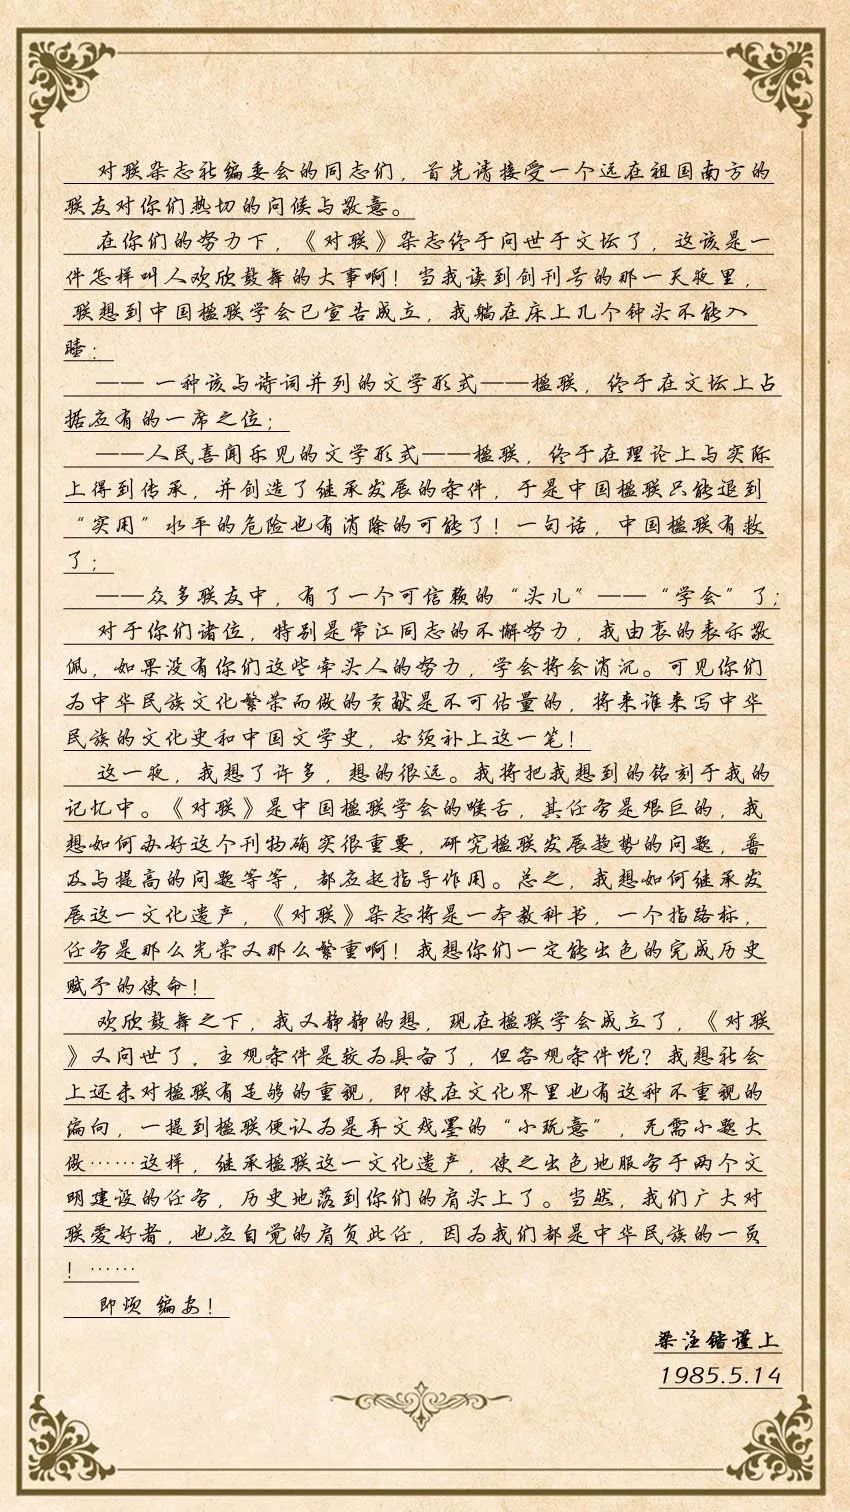 对联杂志社编委会的同志们，首先请接受一个远在祖国南方的
联友对你们热切的问候与敬意。
在你们的努力下，《对联》杂志终于问世于文坛了，这该是一
件怎样叫人欢欣鼓舞的大事啊！当我读到创刊号的那一天夜里，
联想到中国楹联学会已宣告成立，我躺在床上几个钟头不能入
睡：
—— 一种该与诗词并列的文学形式——楹联，终于在文坛上占
据应有的一席之位；
——人民喜闻乐见的文学形式——楹联，终于在理论上与实际
上得到传承，并创造了继承发展的条件，于是中国楹联只能退到
“实用”水平的危险也有消除的可能了！一句话，中国楹联有救
了；
——众多联友中，有了一个可信赖的“头儿”——“学会”了；
对于你们诸位，特别是常江同志的不懈努力，我由衷的表示敬
佩，如果没有你们这些牵头人的努力，学会将会消沉。可见你们
为中华民族文化繁荣而做的贡献是不可估量的，将来谁来写中华
民族的文化史和中国文学史，必须补上这一笔！
这一夜，我想了许多，想的很远。我将把我想到的铭刻于我的
记忆中。《对联》是中国楹联学会的喉舌，其任务是艰巨的，我
想如何办好这个刊物确实很重要，研究楹联发展趋势的问题，普
及与提高的问题等等，都应起指导作用。总之，我想如何继承发
展这一文化遗产，《对联》杂志将是一本教科书，一个指路标，
任务是那么光荣又那么繁重啊！我想你们一定能出色的完成历史
赋予的使命！
欢欣鼓舞之下，我又静静的想，现在楹联学会成立了，《对联
》又问世了，主观条件是较为具备了，但客观条件呢？我想社会
上还未对楹联有足够的重视，即使在文化界里也有这种不重视的
偏向，一提到楹联便认为是弄文戏墨的“小玩意”，无需小题大
做……这样，继承楹联这一文化遗产，使之出色地服务于两个文
明建设的任务，历史地落到你们的肩头上了。当然，我们广大对
联爱好者，也应自觉的肩负此任，因为我们都是中华民族的一员
！……
即烦 编安！
梁注锴谨上
1985.5.14